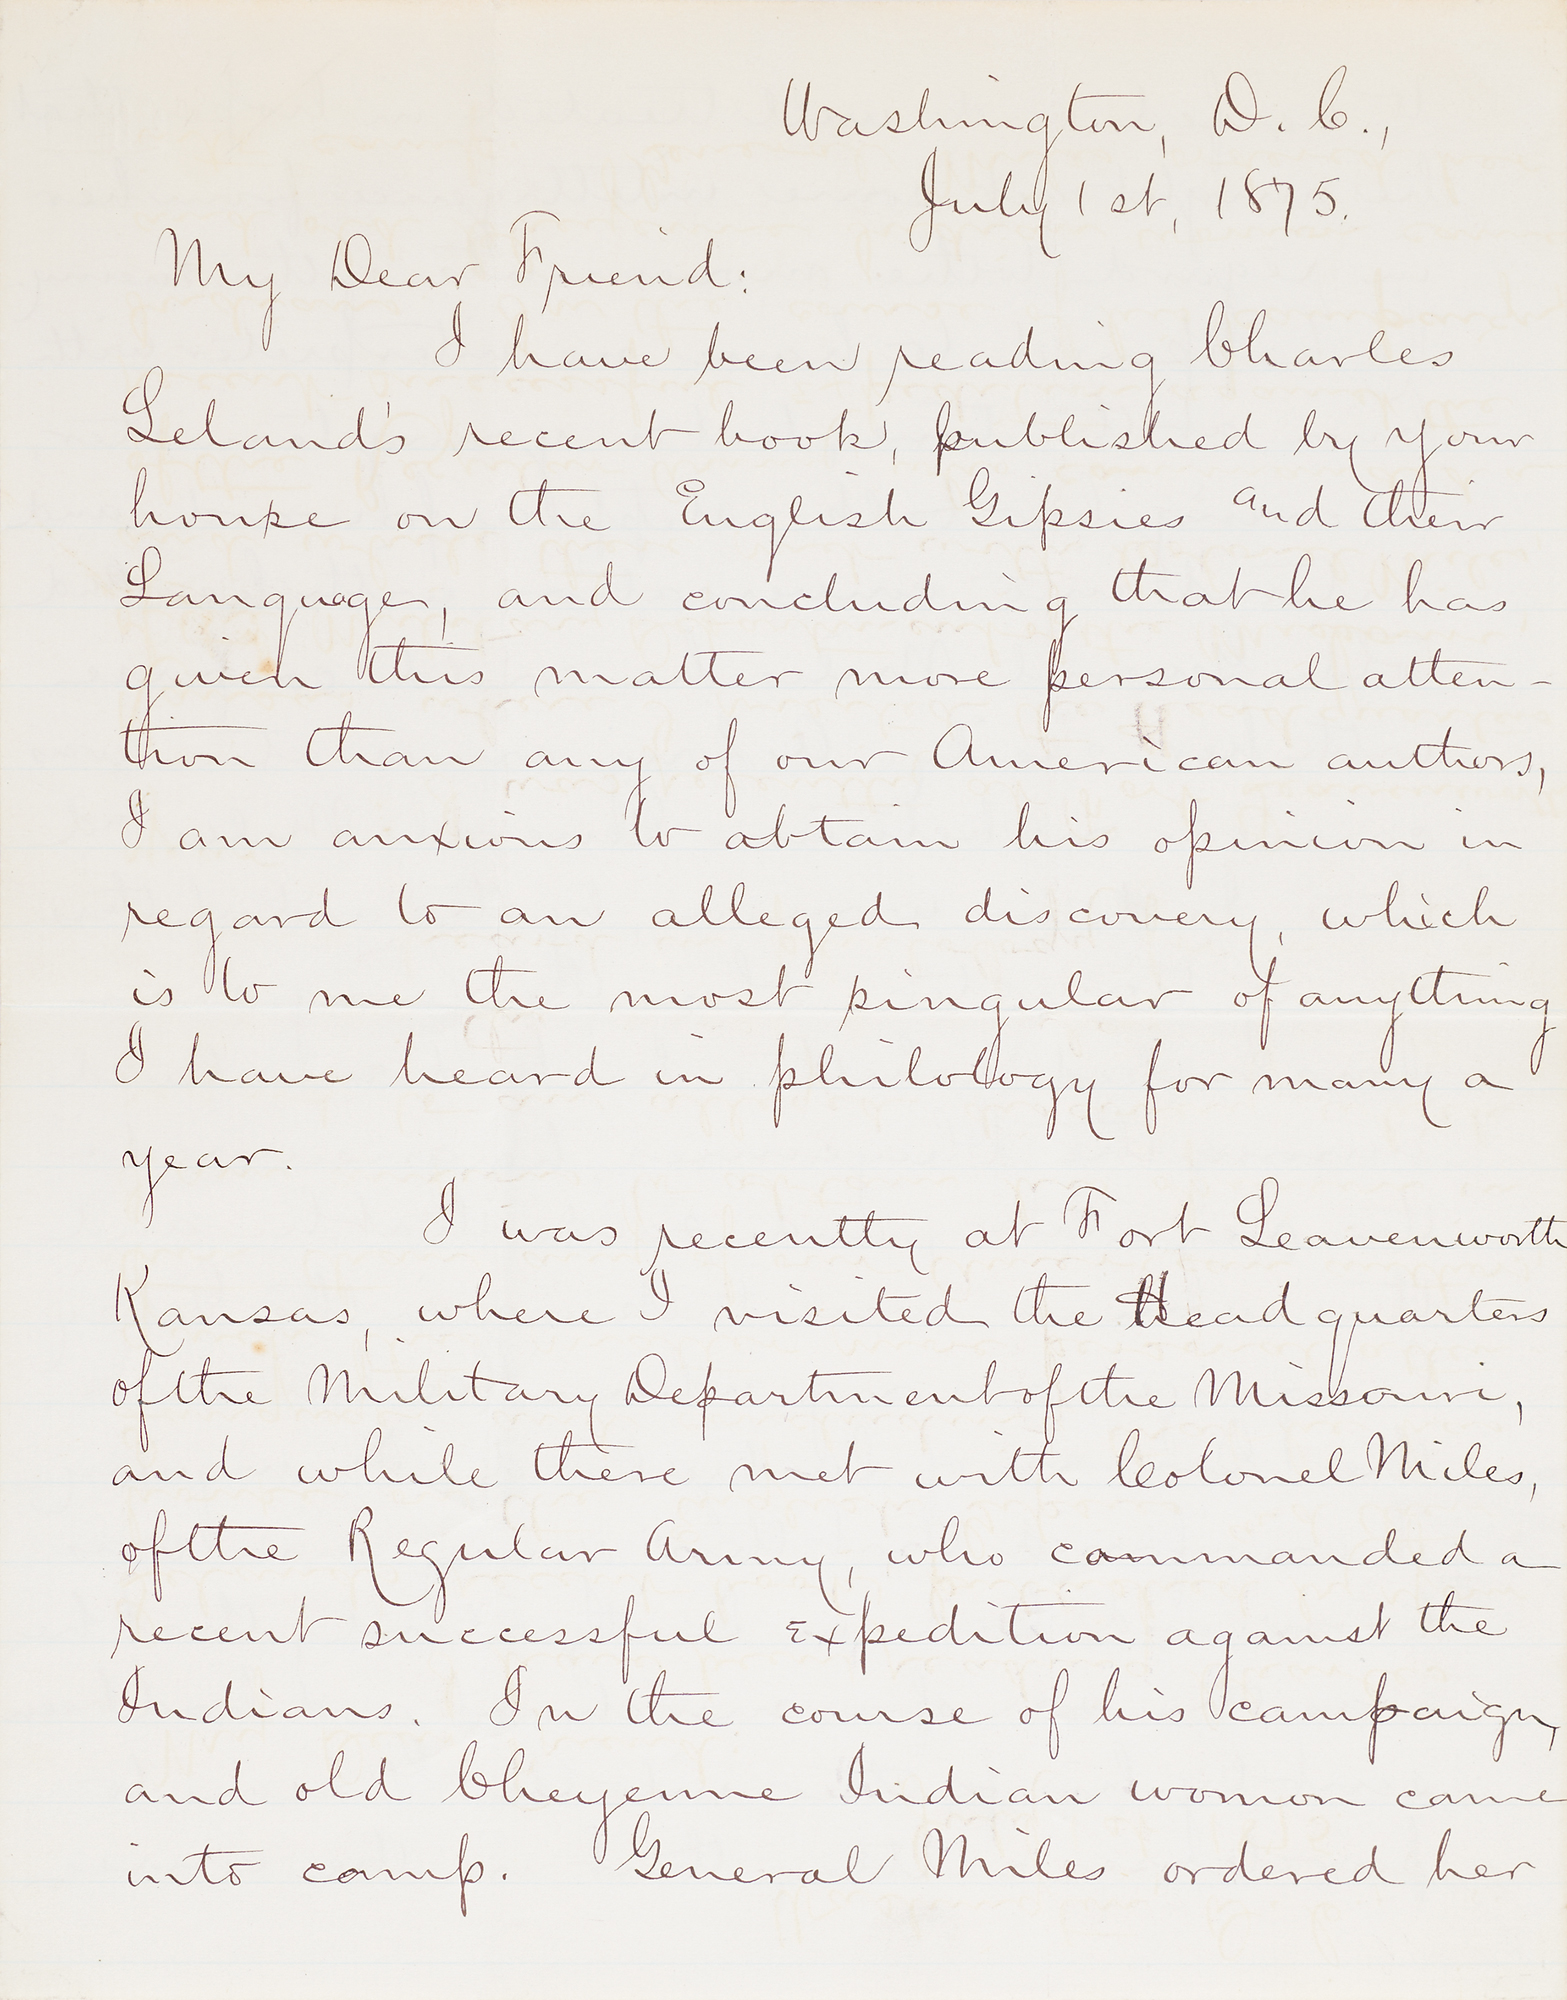 Washington, D. C.,
July 1st, 1875.
My Dear Friend:
I have been reading Charles
Leland's recent book, published by your
house on the English Gipsies and their
Language, and concluding that he has
given this matter more personal atten-
tion than any of our American authors,
I am anxious to obtain his opinion in
regard to an alleged discovery, which
is to me the most singular of anything
I have heard in philology for many a
year.
I was recently at Fort Leavenworth
Kansas, where I visited the Headquarters
of the Military Department of the Missouri,
and while there met with Colonel Miles,
of the Regular Army, who commanded a
recent successful Expedition against the
Indians. In the course of his campaign,
and old Cheyenne Indian woman came
into camp. General Miles ordered her